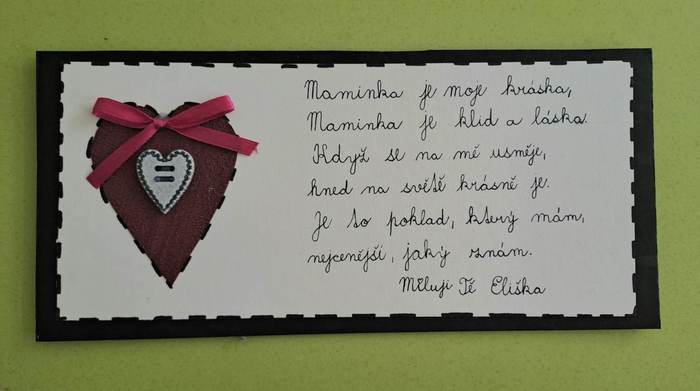 Maminka je moje kráska,
Maminka je klid a láska.
Když se na mě usměje,
hned na světě krásně je.
Je to poklad, který mám,
nejcenější, jaký znám.
Miluji Tě Eliška